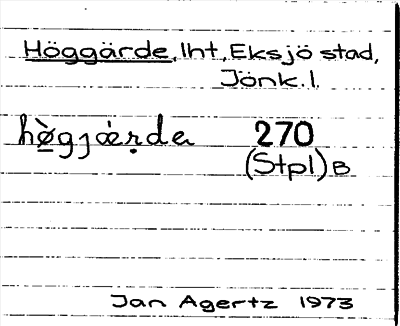 Höggärde, lht, Eksjö stad,
Jönk. l.
hø̀gjæ̀rda 270
(Stpl) B
Jan Agertz 1973